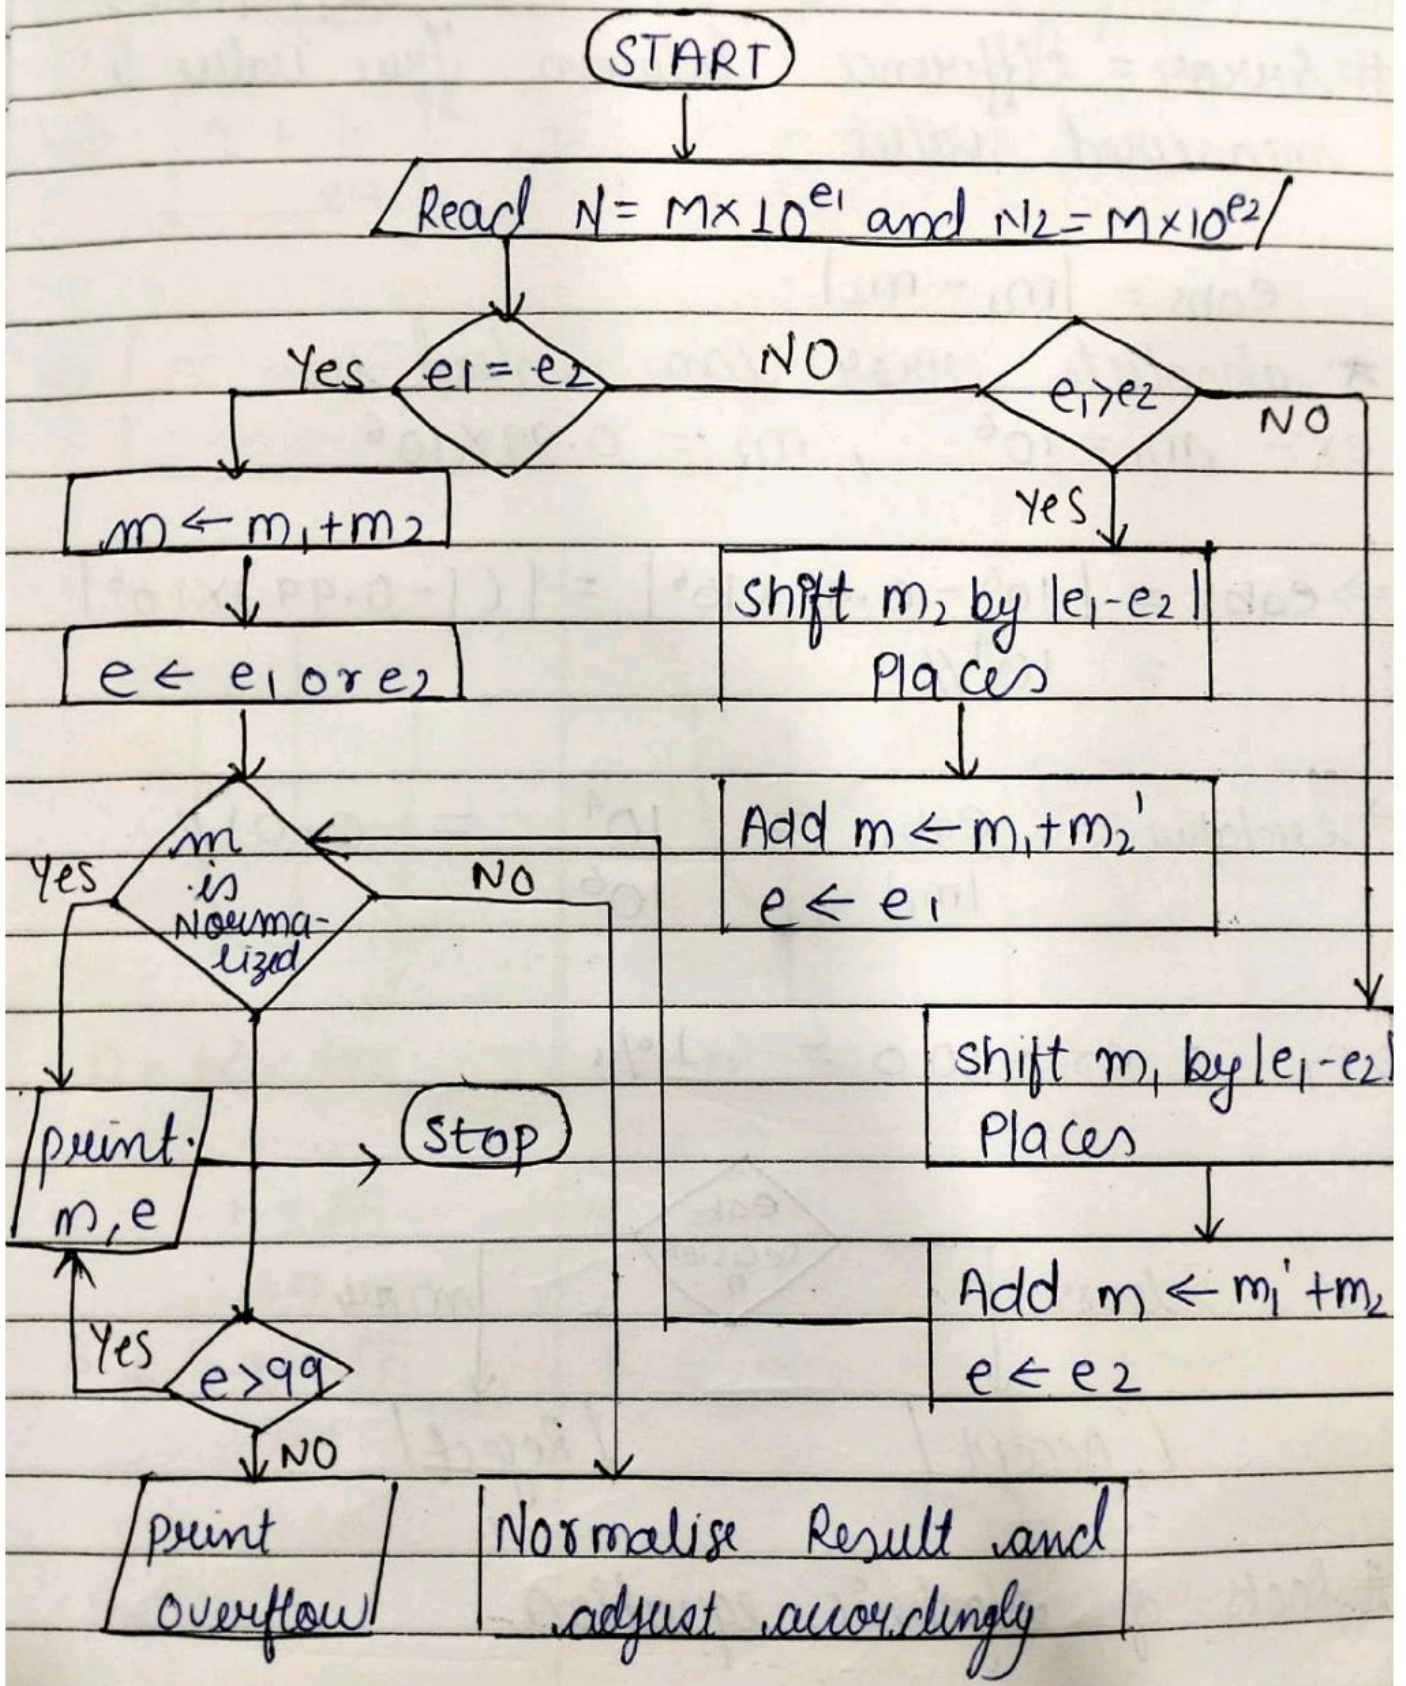 START
Read N = M×10^e1 and N2 = M×10^e2
e1 = e2
Yes
NO
e1>e2
NO
Yes
m ← m1+m2
e ← e1 or e2
shift m2 by |e1-e2|
Places
Add m ← m1+m2'
e ← e1
m
is
Norma-
lized
Yes
NO
shift m1 by |e1-e2|
Places
Add m ← m1'+m2
e ← e2
print
m, e
Stop
e>99
Yes
NO
print
overflow
Normalise Result and
adjust accordingly